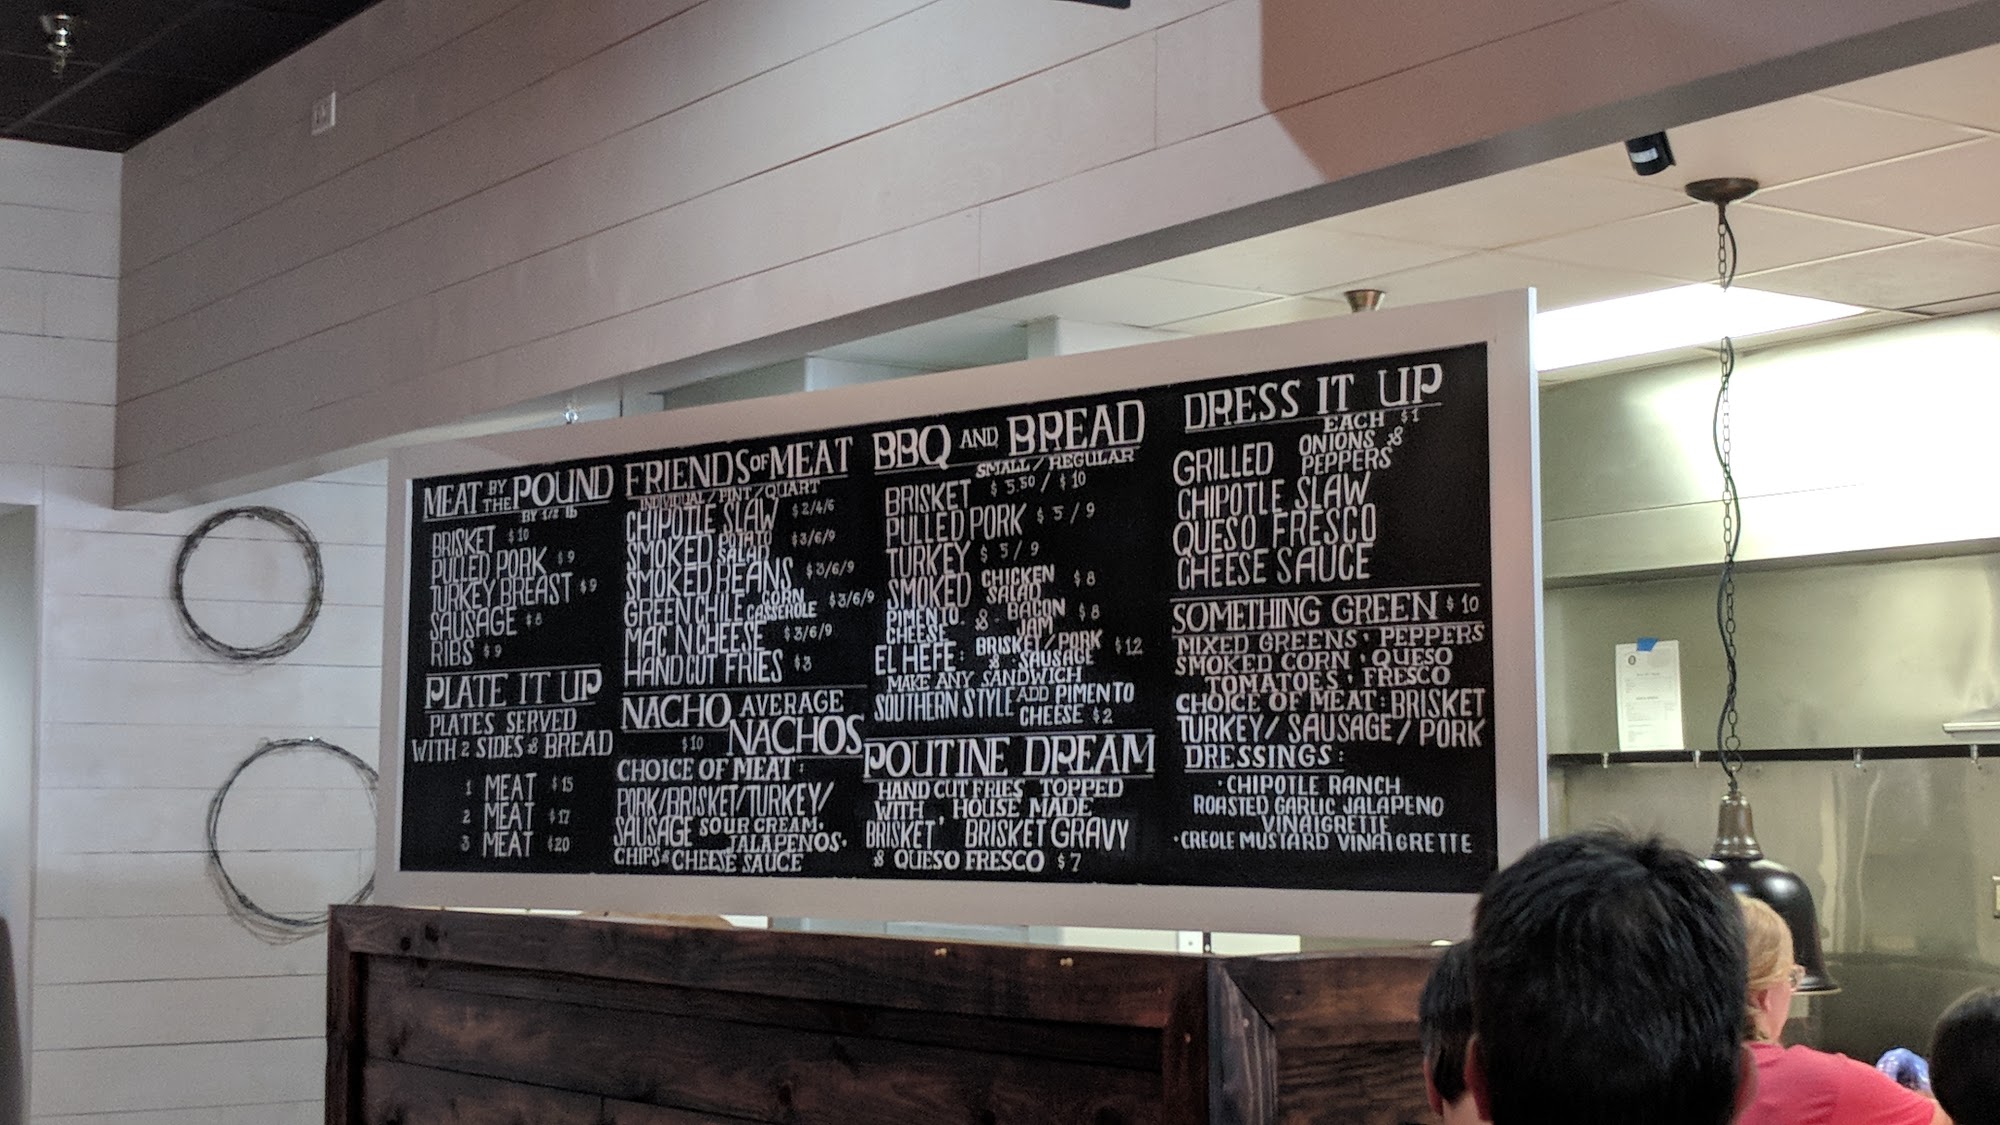 MEAT BY THE POUND
BY 1/2 lb
BRISKET $10
PULLED PORK $9
TURKEY BREAST $9
SAUSAGE $8
RIBS $9
PLATE IT UP
PLATES SERVED
WITH 2 SIDES & BREAD
1 MEAT $15
2 MEAT $17
3 MEAT $20
FRIENDS OF MEAT
INDIVIDUAL/PINT/QUART
CHIPOTLE SLAW $2/4/6
SMOKED POTATO SALAD $3/6/9
SMOKED BEANS $3/6/9
GREEN CHILE CORN CASSEROLE $3/6/9
MAC N CHEESE $3/6/9
HAND CUT FRIES $3
NACHO AVERAGE
$10 NACHOS
CHOICE OF MEAT:
PORK/BRISKET/TURKEY/
SAUSAGE SOUR CREAM,
JALAPENOS,
CHIPS & CHEESE SAUCE
BBQ AND BREAD
SMALL / REGULAR
BRISKET $5.50 / $10
PULLED PORK $5/9
TURKEY $5/9
SMOKED CHICKEN SALAD $8
PIMENTO CHEESE & BACON JAM $8
EL HEFE: BRISKET/PORK & SAUSAGE $12
MAKE ANY SANDWICH
SOUTHERN STYLE ADD PIMENTO
CHEESE $2
POUTINE DREAM
HAND CUT FRIES TOPPED
WITH, HOUSE MADE
BRISKET, BRISKET GRAVY
& QUESO FRESCO $7
DRESS IT UP
EACH $1
GRILLED ONIONS & PEPPERS
CHIPOTLE SLAW
QUESO FRESCO
CHEESE SAUCE
SOMETHING GREEN $10
MIXED GREENS · PEPPERS
SMOKED CORN · QUESO
TOMATOES · FRESCO
CHOICE OF MEAT: BRISKET
TURKEY/ SAUSAGE / PORK
DRESSINGS:
· CHIPOTLE RANCH
ROASTED GARLIC JALAPENO
VINAIGRETTE
· CREOLE MUSTARD VINAIGRETTE